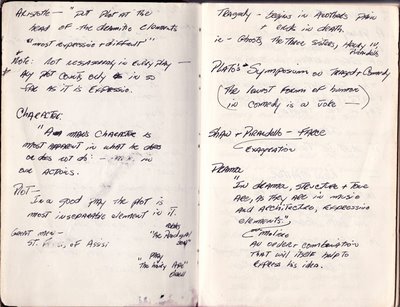 Aristotle - "Put Plot at the
head of the dramatic elements
"most expressive + difficult"
Note: Not necessarily in every play -
Any plot counts only in so
far as it is expressive.
Character:
"A man's character is
most apparent in what he does
or does not do: - in
our actions.
Plot -
In a good play the plot is
most inseparable element in it.
Great men -
St. of Assisi
play
Tragedy - begins in Another's Pain
+ ends in death.
ie - Ghosts, The Three Sisters, Henry IV,
Pirandello
Plato's Symposium on Tragedy + Comedy
(The lowest Form of humor
in comedy is a joke -
Shaw + Pirandello - Farce
Exaggeration
Drama
"In drama, structure + tone
are, as they are in music
and architecture, expressive
elements."
An order + combination
that will itself help to
express his idea.